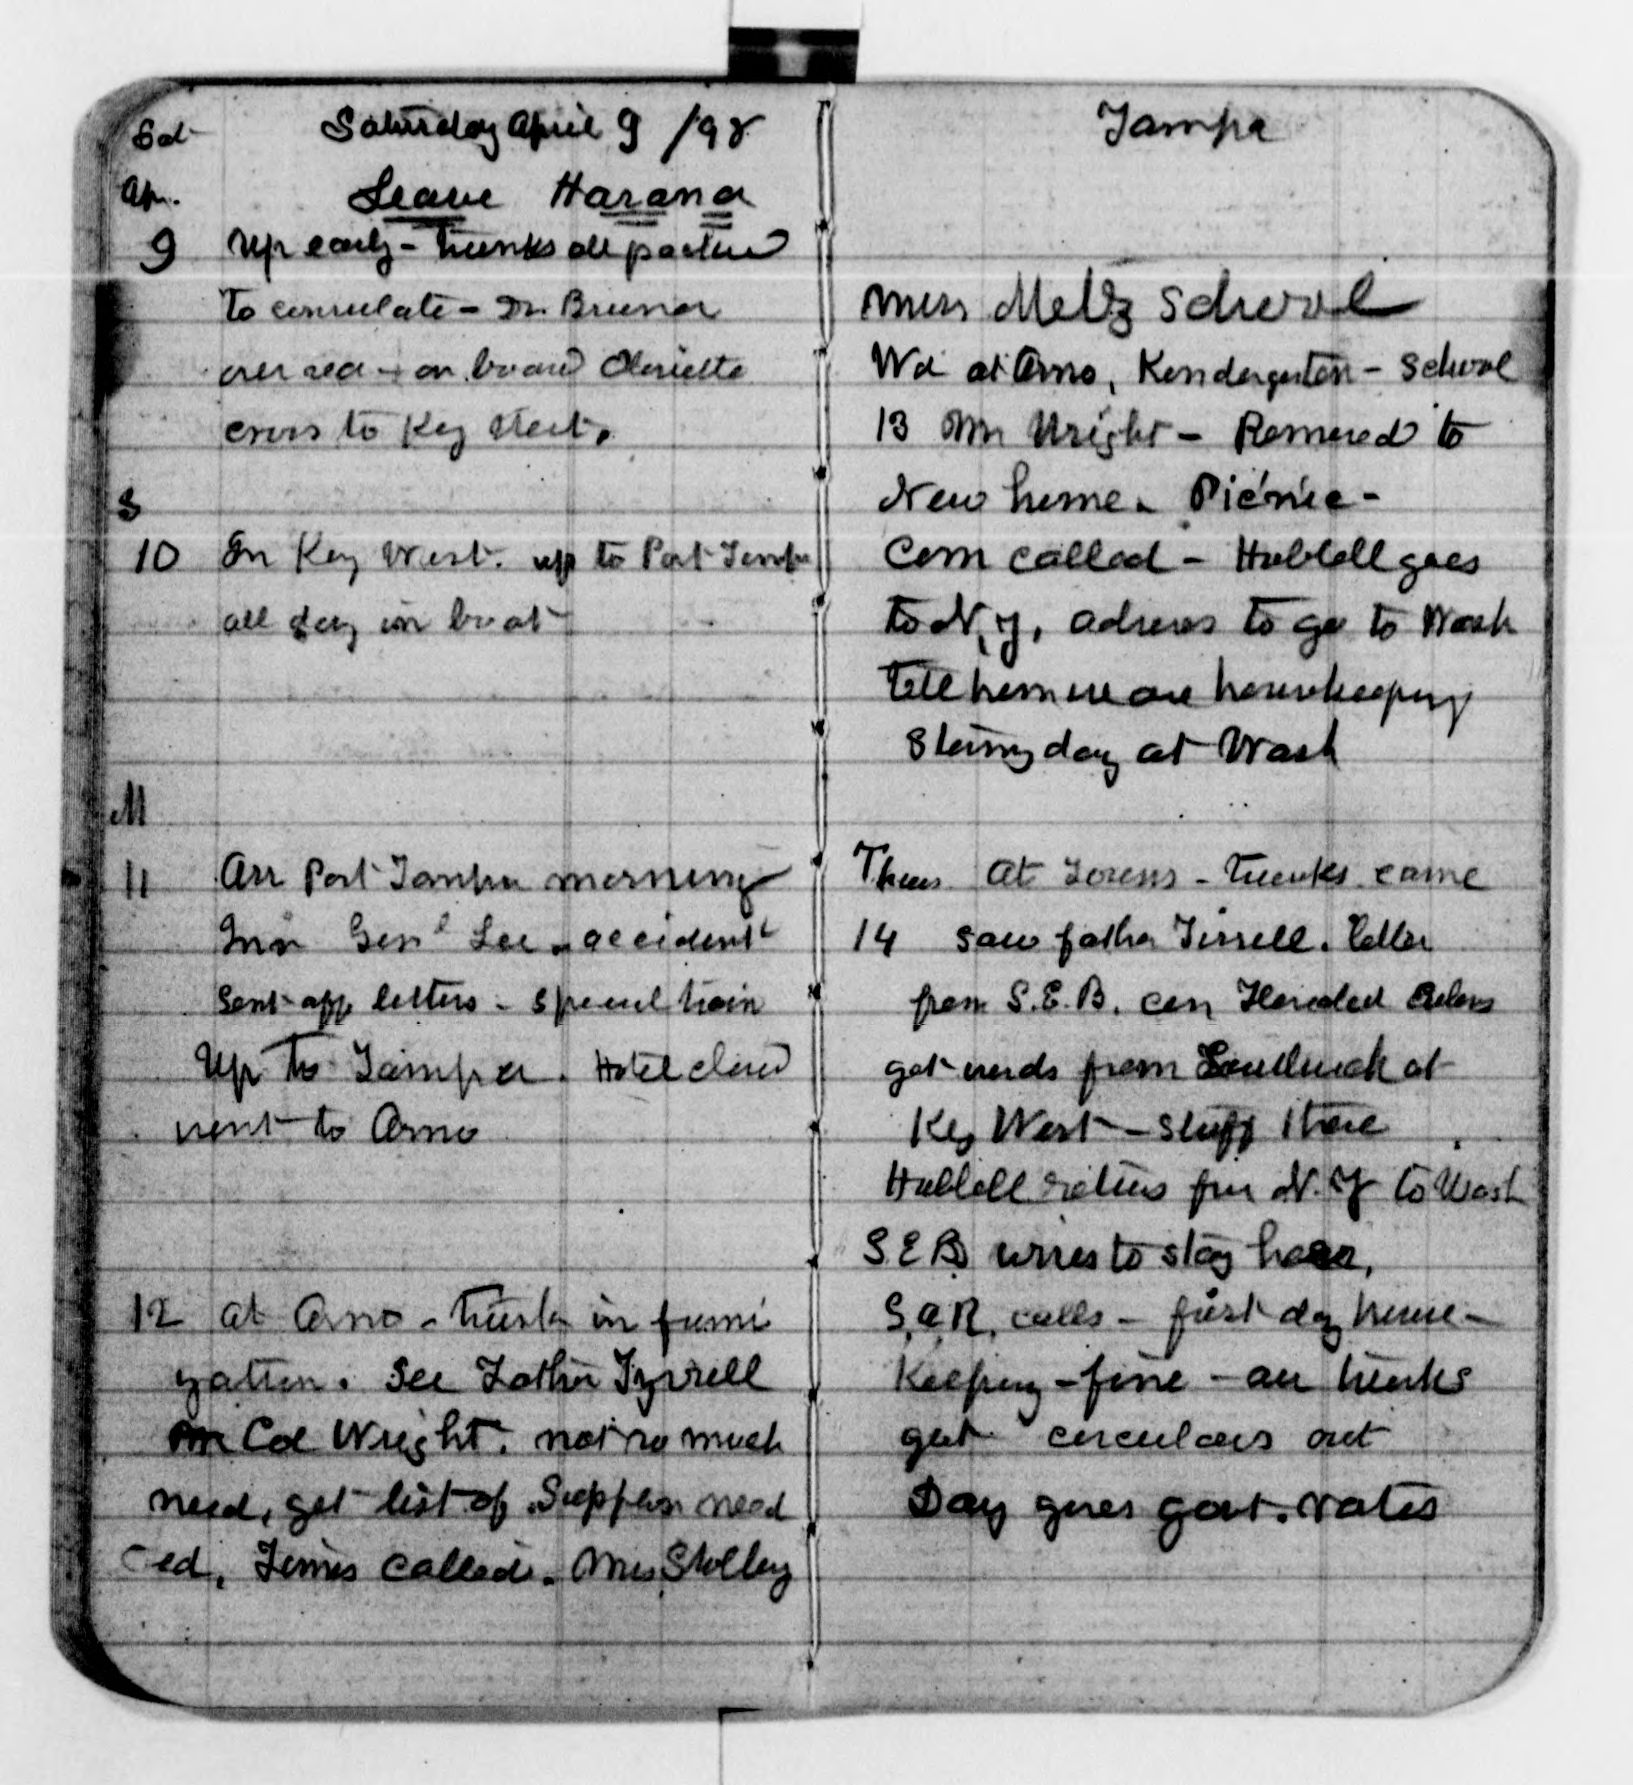 Sat Saturday April 9 /98
Ap. Leave Havana
9 Up early - trunks all packed
to consulate - Dr. Brunner
over sea - on board Olivette
cross to Key West.
S
10 In Key West. up to Port Tampa
all day in boat
M
11 Arr Port Tampa morning
Genl Lee - accident
Sent off letters - special train
Up to Tampa. Hotel closed
went to Arno
12 at Arno - trunks in fumi
gation. See Father Tyrrell
Col Wright. not so much
need, get list of Supplies need
ed, called. Mrs Stolley
Tampa
Miss Metz School
Wd at Arno, Kindergarten - School
13 Mr Wright - Removed to
New home. Picnic -
Com called - Hubbell goes
to N.Y. advises to go to Wash
tell him we are housekeeping
Stormy day at Wash
Thurs At - trunks came
14 saw father Tirrell. letter
from S.E.B. Herald
get words from at
Key West - stuff there
Hubbell returns from N.Y to Wash
S.E.B. wires to stay here,
S.A.R. calls - first day house-
Keeping - fine - all trunks
get circulars out
Day gives govt. rates